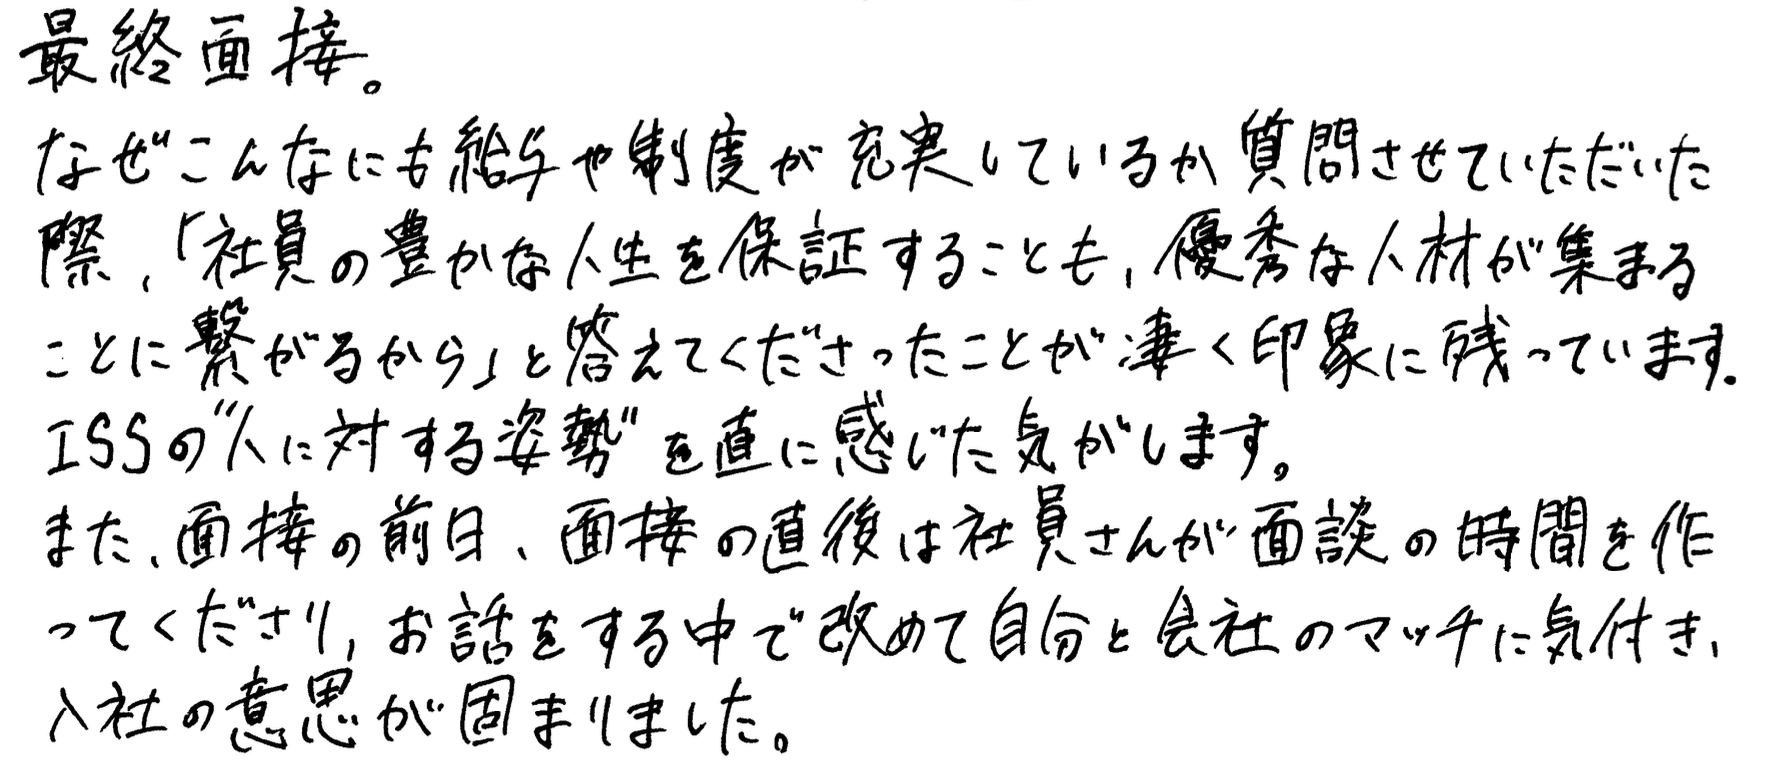 最終面接。
なぜこんなにも給与や制度が充実しているか質問させていただいた
際、「社員の豊かな人生を保証することも、優秀な人材が集まる
ことに繋がるから」と答えてくださったことが凄く印象に残っています。
ISSの"人に対する姿勢"を直に感じた気がします。
また、面接の前日、面接の直後は社員さんが面談の時間を作
ってくださり、お話をする中で改めて自分と会社のマッチに気付き、
入社の意思が固まりました。